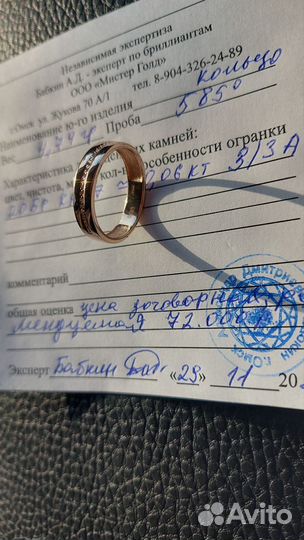 Независимая экспертиза
Бабкин А.Д. - эксперт по бриллиантам
ООО «Мистер Голд»
г.Омск ул. Жукова 70 А/1 тел. 8-904-326-24-89
Наименование ю-го изделия кольцо
Вес Проба 585°
Характеристика камней:
цвет, чистота, кол- особенности огранки
3/3А
комментарий
общая оценка цена договорная
72.000
Эксперт Бабкин «29» 11 20
Дмитриевич
г.Омск
Avito